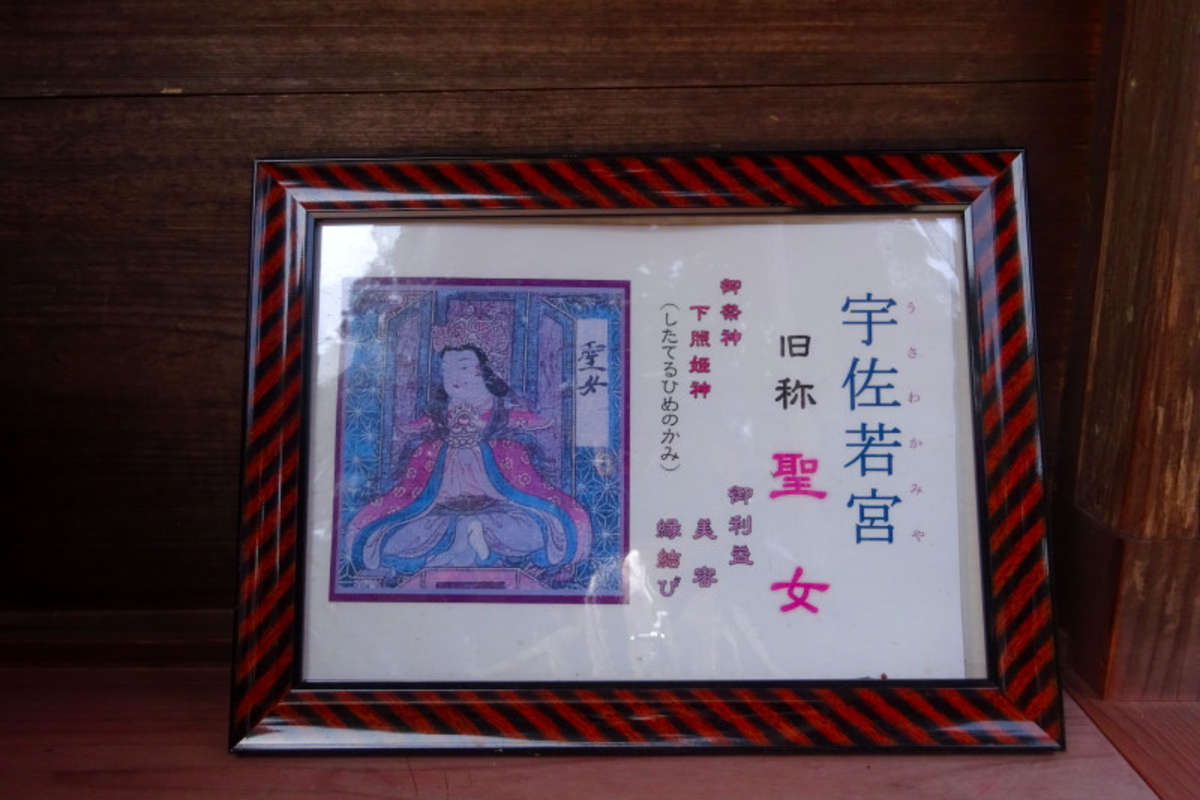 宇佐若宮
うさわかみや
旧称 聖女
御祭神
下照姫神
(したてるひめのかみ)
御利益
美容
縁結び
聖女